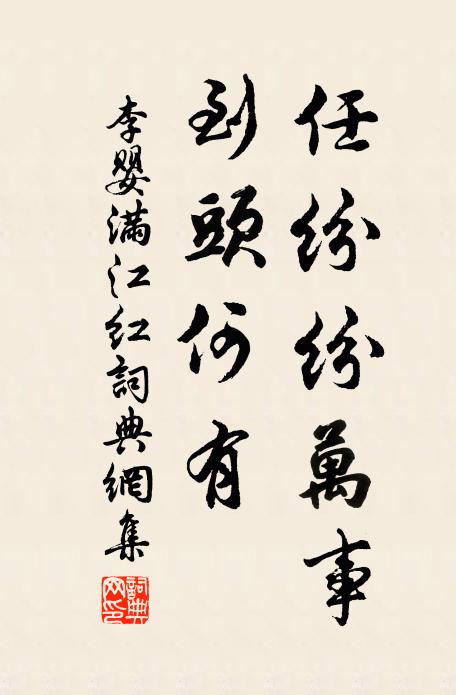 任紛紛萬事
到頭何有
李嬰滿江紅詞典網集
詞典網印